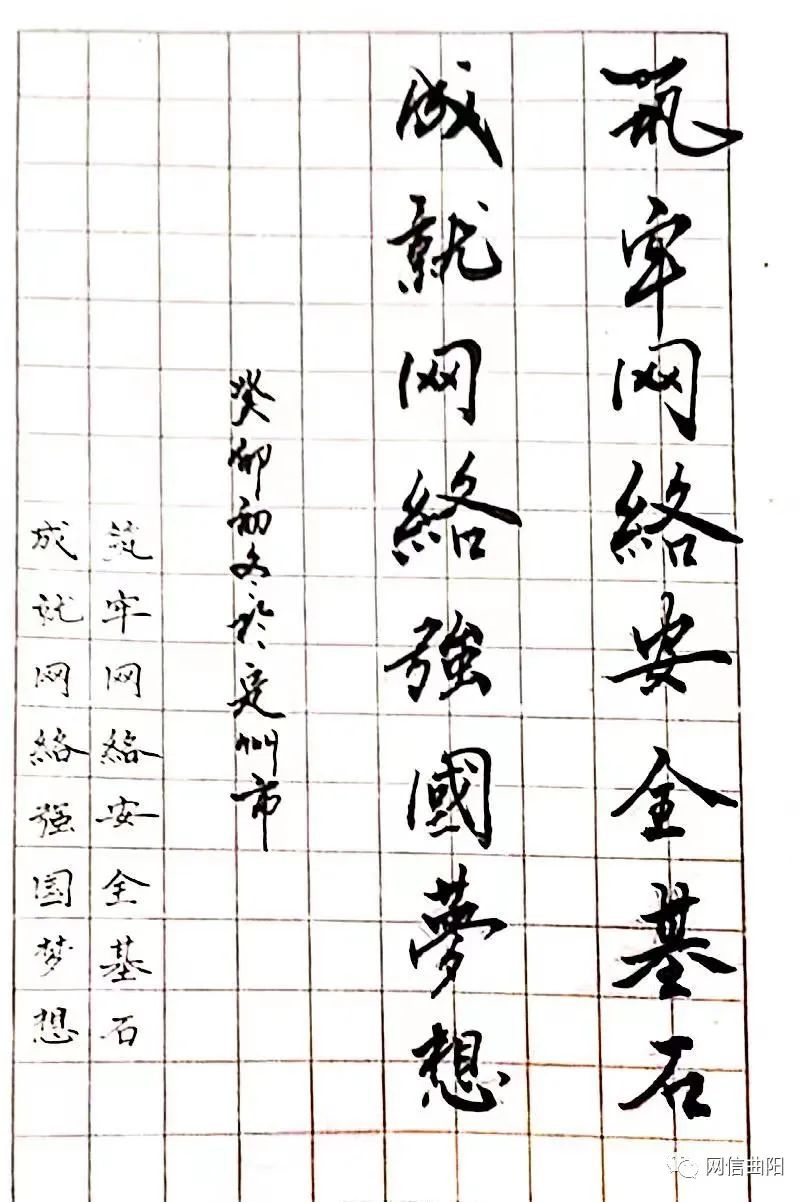 筑牢网络安全基石
成就网络强國夢想
癸卯初冬於定州市
筑牢网络安全基石
成就网络强国梦想
网信曲阳